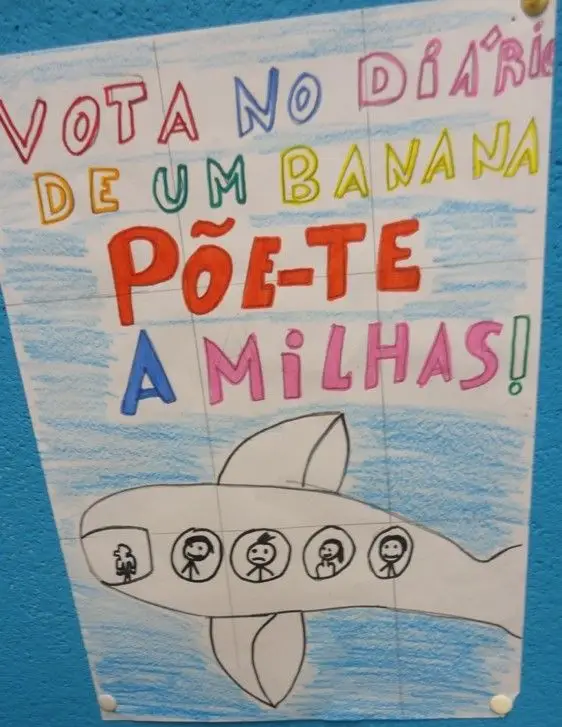 VOTA NO DIÁRIO
DE UM BANANA
PÕE-TE
A MiLHAS!